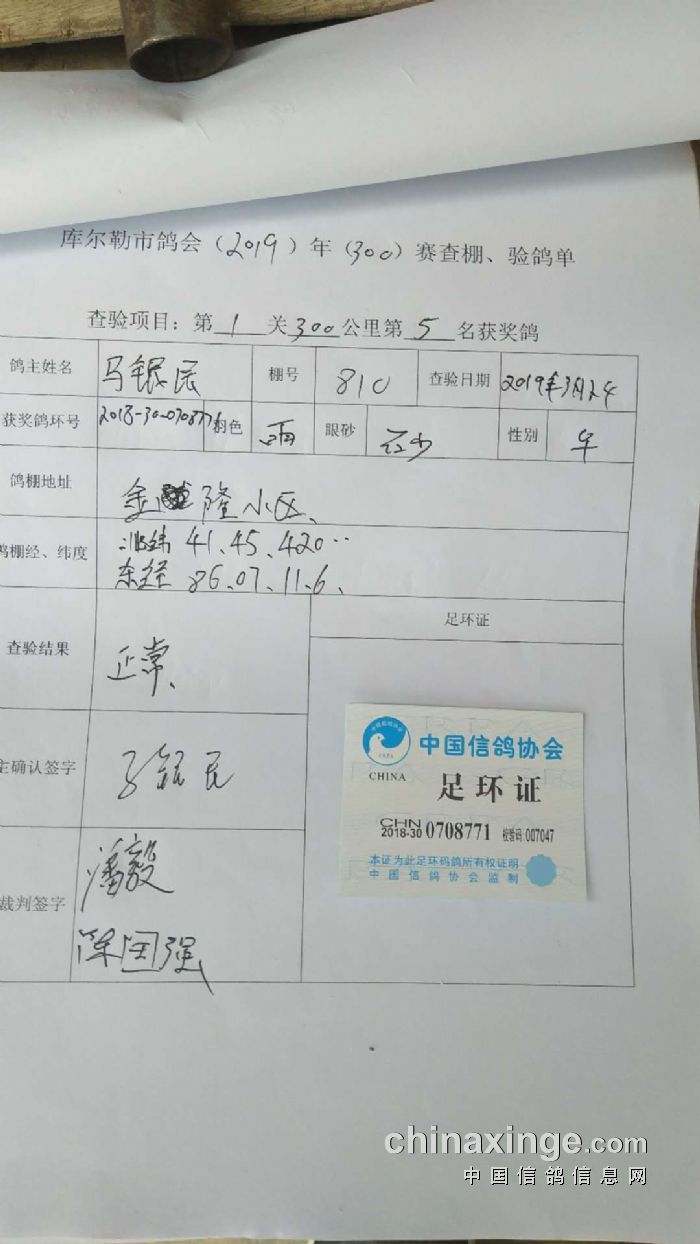 库尔勒市鸽会（2019）年（300）赛查棚、验鸽单
查验项目：第1关300公里第5名获奖鸽
鸽主姓名 马银民 棚号 810 查验日期 2019年3月24
获奖鸽环号 2018-30-0708771 羽色 雨 眼砂 沙 性别 ♀
鸽棚地址 金隆小区、
鸽棚经、纬度 北纬 41、45、420..
东经 86、07、11、6、
查验结果 正常、
足环证
主确认签字 马银民
裁判签字 潘毅
陈国强
中国信鸽协会
CHINA
足环证
CHN
2018-30 0708771 校验码:007047
本证为此足环码鸽所有权证明
中国信鸽协会监制
chinaxinge.com
中国信鸽信息网